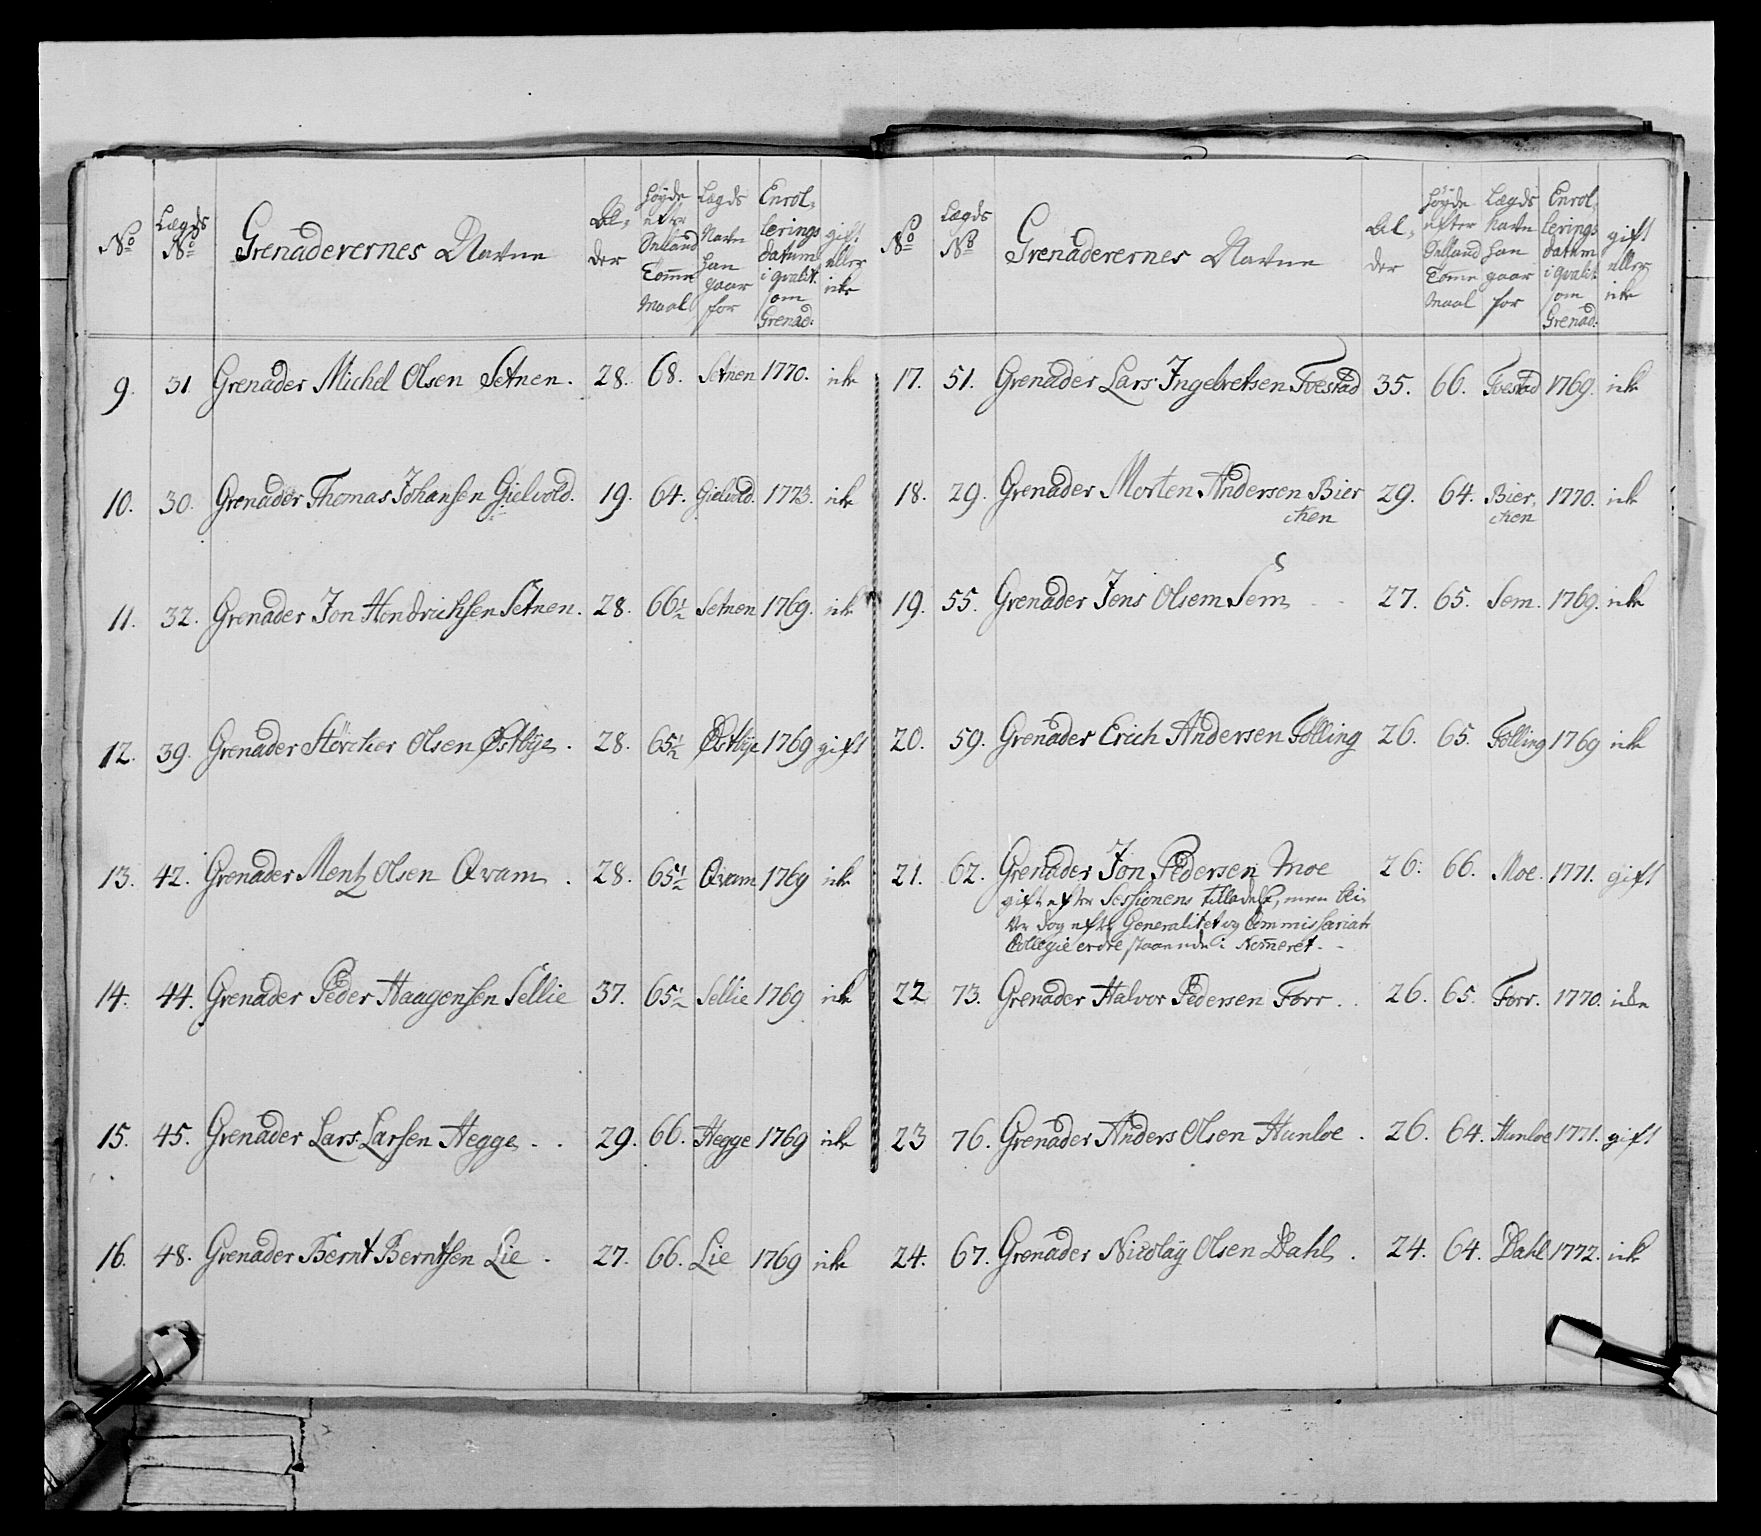 No
Lægds No
Grenaderernes Navne
Al-
der
Høyde efter Siælland Tomme Maal
Lægds Navn han gaar for
Enrol-
lerings datum i qvalit. som Grenad:
gift eller icke
9. 31 Grenader Michel Olsen Setnen. 28. 68. Setnen 1770. icke
10. 30. Grenader Thomas Johansen Gielvold. 19. 64. Gielvold. 1773. icke
11. 32. Grenader Jon Hendrichsen Setnen. 28. 66½ Setnen 1769. icke
12. 39. Grenader Störcker Olsen Østbye. 28. 65½ Østbye 1769 gift
13. 42. Grenader Mentz Olsen Qvam. 28. 65½ Qvam 1769 icke
14. 44. Grenader Peder Haagensen Sellie 37. 65½ Sellie 1769 icke
15. 45. Grenader Lars Larsen Hegge. 29. 66. Hegge 1769 icke
16. 48. Grenader Bernt Berntsen Lie. 27. 66. Lie 1769 icke
No
Lægds No
Grenaderernes Navne
Al-
der
Høyde efter Siælland Tomme Maal
Lægds Navn han gaar for
Enrol-
lerings datum i qvalit. som Grenad:
gift eller icke
17. 51. Grenader Lars Ingebretsen Foestad 35. 66. Foestad 1769. icke
18. 29. Grenader Morten Andersen Bier 29. 64. Bier- 1770. icke
cken cken
19. 55. Grenader Jens Olsem Sem 27. 65. Sem. 1769. icke
20. 59. Grenader Erich Andersen Fölling 26. 65. Fölling 1769 icke
21. 62. Grenader Jon Pedersen Moe 26: 66. Moe. 1771. gift
gift efter Sessionens tilladelse, men bli-
ver dog efter Generalitet og Commissariats
Collegie ordre staaende i Nommeret.
22 73. Grenader Halvor Pedersen Forr. 26. 65. Forr. 1770. icke
23 76. Grenader Anders Olsen Hunloe. 26. 64. Hunloe 1771. gift
24. 67. Grenader Nicolay Olsen Dahl. 24. 64. Dahl 1772. icke